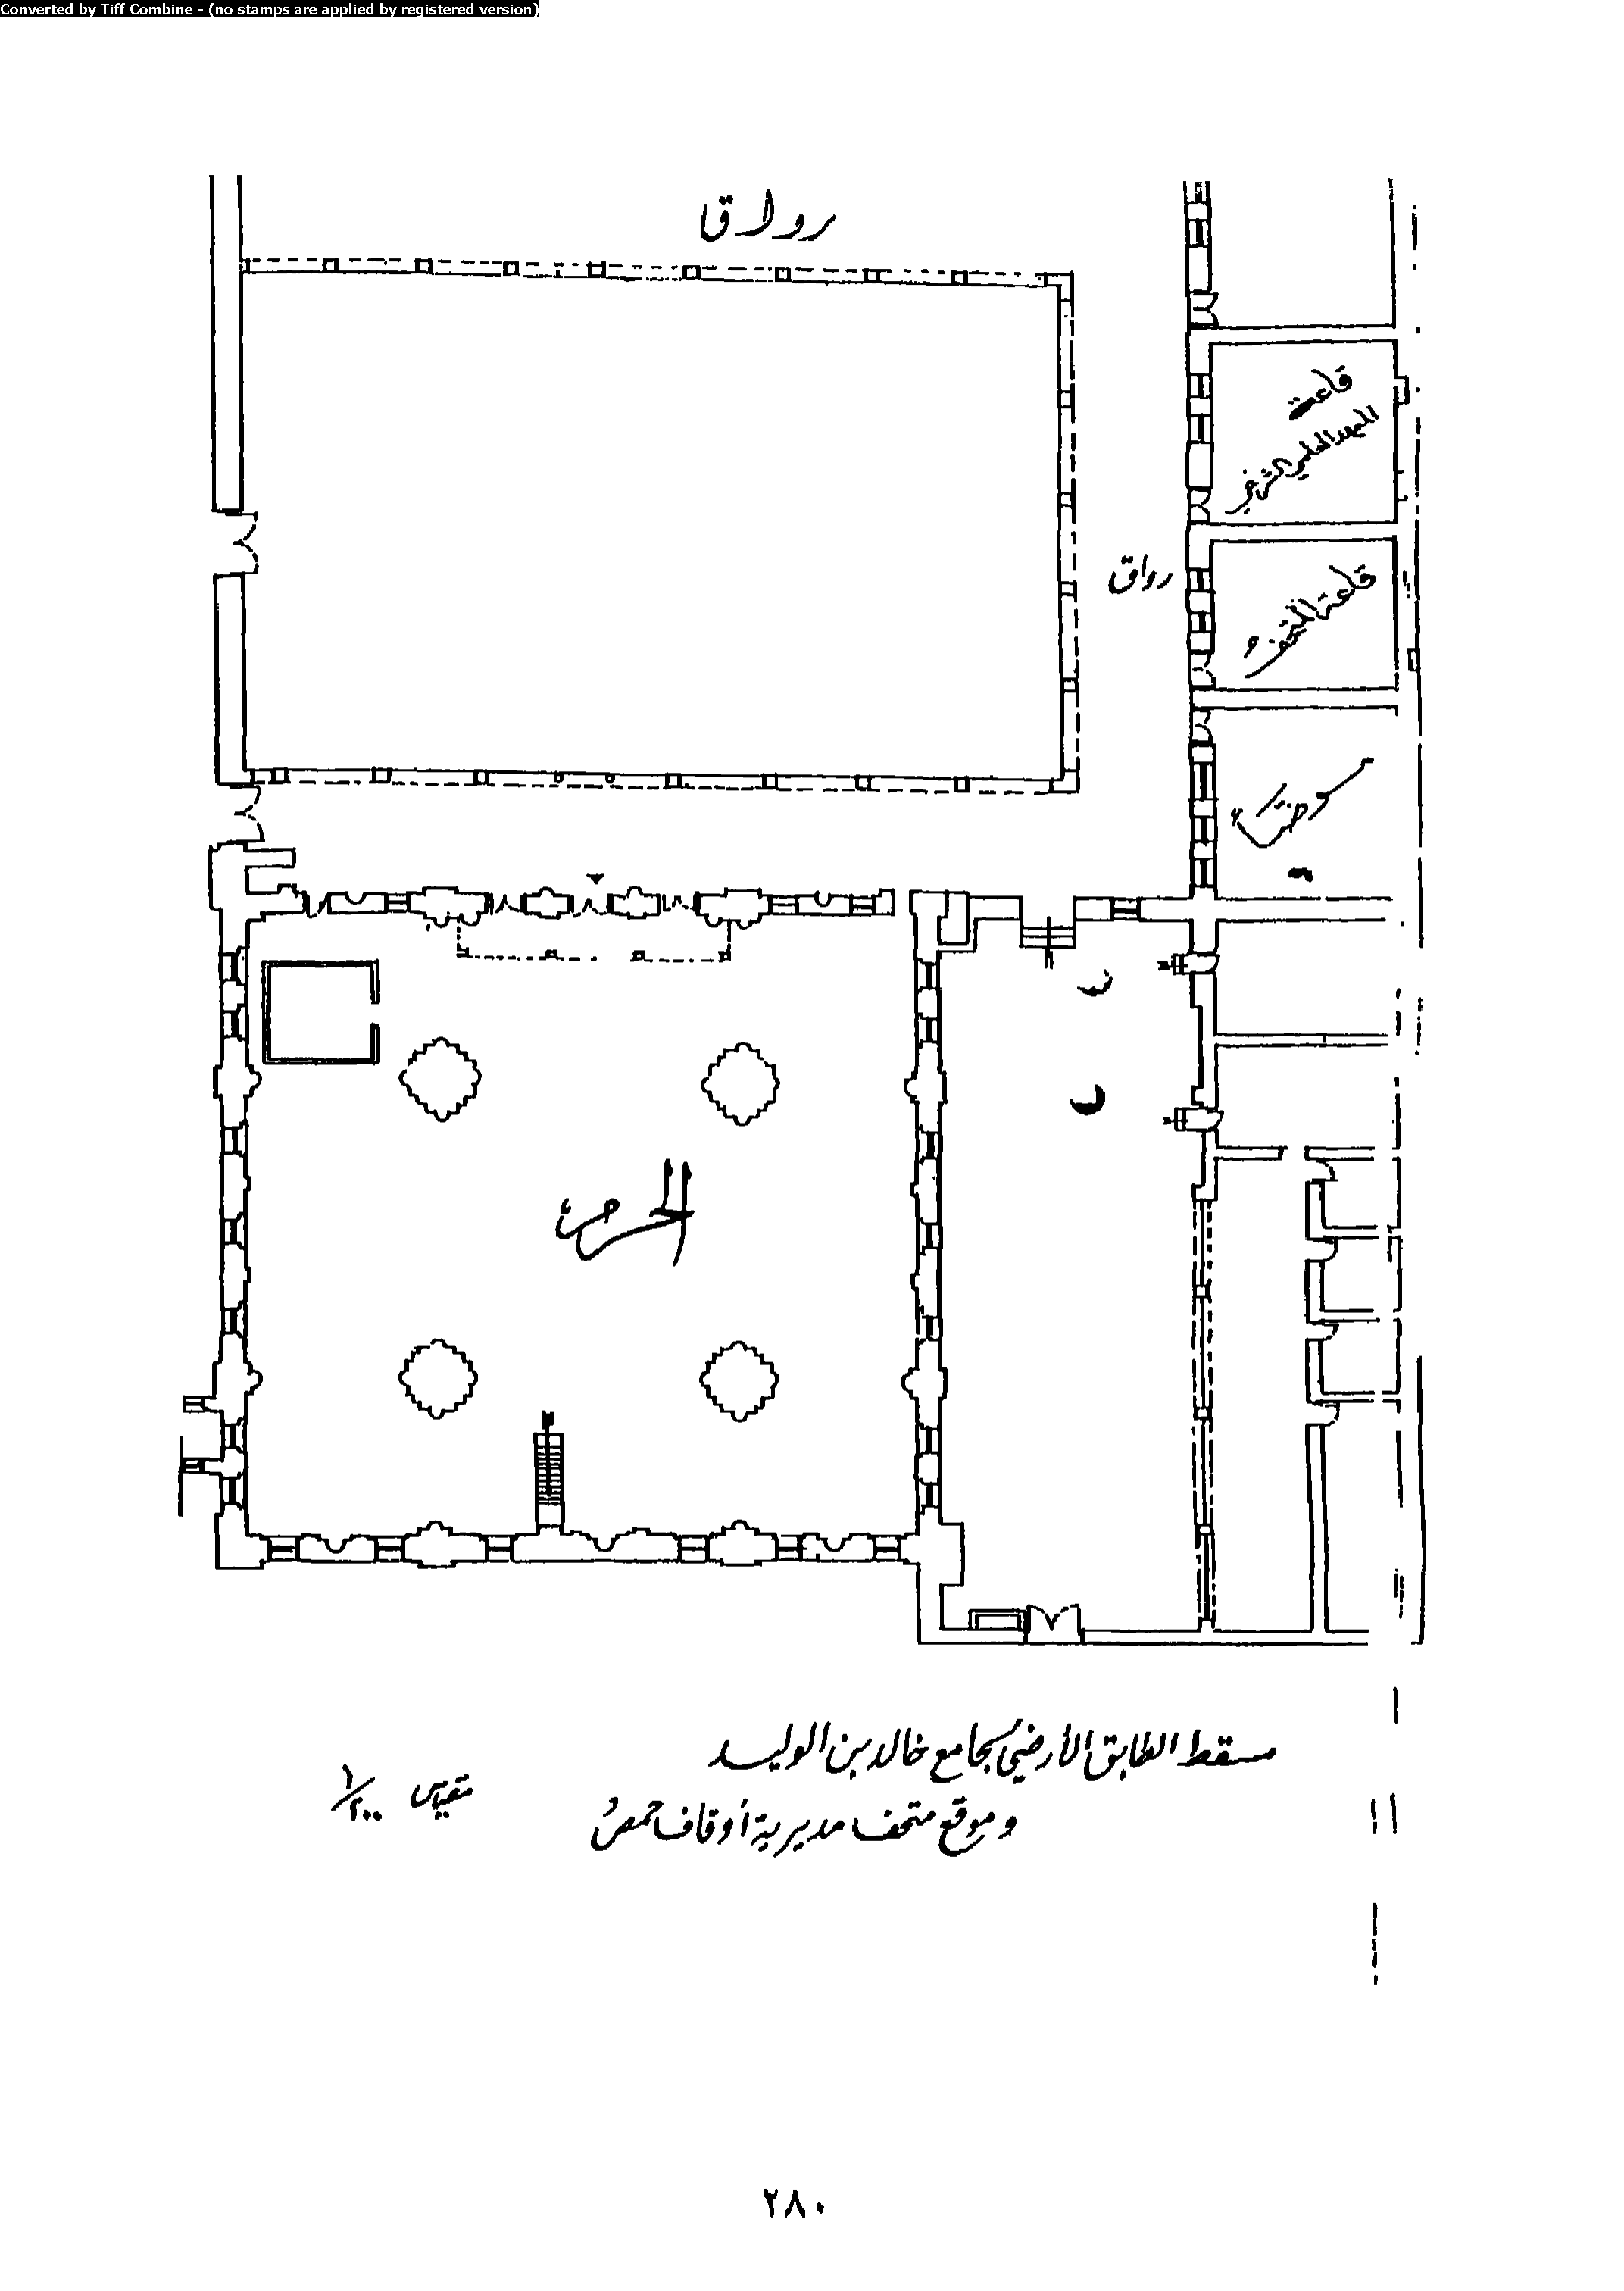 Converted by Tiff Combine - (no stamps are applied by registered version)
رواق
قاعة
المعهد العلمي الشرعي
رواق
قاعة المتحف
الحرم
مسقط الطابق الأرضي لجامع خالد بن الوليد
وموقع متحف مديرية أوقاف حمص
مقياس ١/٢٠٠
٢٨٠